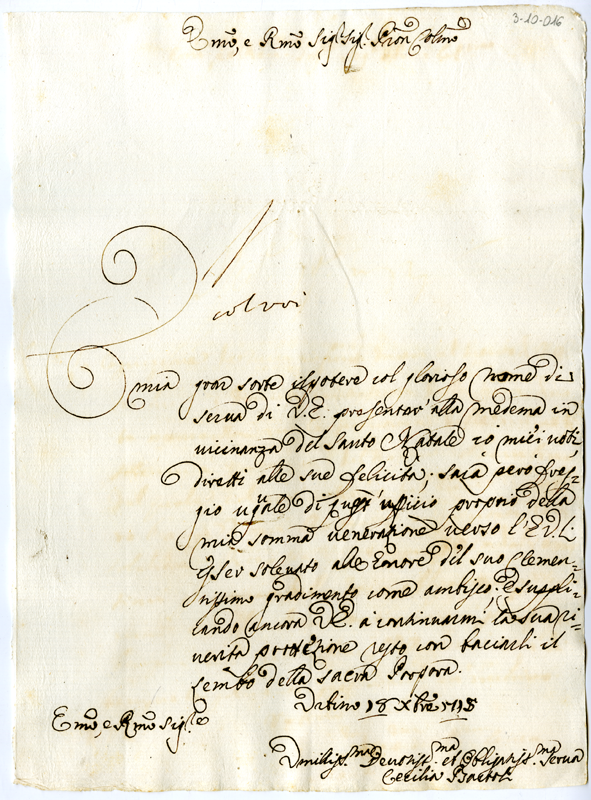 3-10-016
Emo, e Rmo Sig.r Sig.r Pron Colmo
È mia gran sorte il potere col glorioso nome di
serva di V.E. presentar' alla medema in
vicinanza del Santo Natale i miei voti
diretti alle sue felicità; sarà però fre-
gio uguale di quest'ufficio proprio della
mia somma venerazione verso l'E.V. l'
esser solevato alle honore del suo Clemen-
tissimo gradimento come ambisco. E suppli-
cando ancora V.E. a continuarmi la sua ri-
verita protezione resto con baciarli il
lembo della sacra Porpora.
Urbino 18 Xbre
Emo, e Rmo Sig.re
Umiliss.ma Devotiss.ma et Obligatiss.ma Serva
Cecilia Bartoli